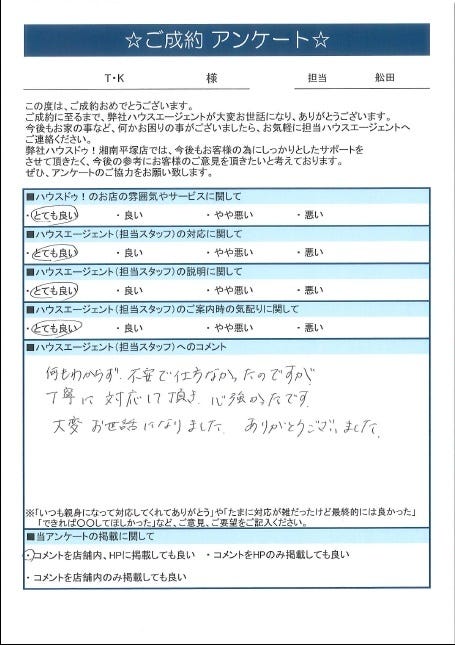 ☆ご成約 アンケート☆
T・K 様 担当 舩田
この度は、ご成約おめでとうございます。
ご成約に至るまで、弊社ハウスエージェントが大変お世話になり、ありがとうございます。
今後もお家の事など、何かお困りの事がございましたら、お気軽に担当ハウスエージェントへ
ご連絡ください。
弊社ハウスドゥ！湘南平塚店では、今後もお客様の為にしっかりとしたサポートを
させて頂きたく、今後の参考にお客様のご意見を頂きたいと考えております。
ぜひ、アンケートのご協力をお願い致します。
■ハウスドゥ！のお店の雰囲気やサービスに関して
・とても良い ・良い ・やや悪い ・悪い
■ハウスエージェント(担当スタッフ)の対応に関して
・とても良い ・良い ・やや悪い ・悪い
■ハウスエージェント(担当スタッフ)の説明に関して
・とても良い ・良い ・やや悪い ・悪い
■ハウスエージェント(担当スタッフ)のご案内時の気配りに関して
・とても良い ・良い ・やや悪い ・悪い
■ハウスエージェント(担当スタッフ)へのコメント
何もわからず、不安で仕方なかったのですが
丁寧に対応して頂き、心強かたです。
大変お世話になりました。ありがとうございました。
※「いつも親身になって対応してくれてありがとう」や「たまに対応が雑だったけど最終的には良かった」
「できれば〇〇してほしかった」など、ご意見、ご要望をご記入ください。
■当アンケートの掲載に関して
・コメントを店舗内、HPに掲載しても良い ・コメントをHPのみ掲載しても良い
・コメントを店舗内のみ掲載しても良い